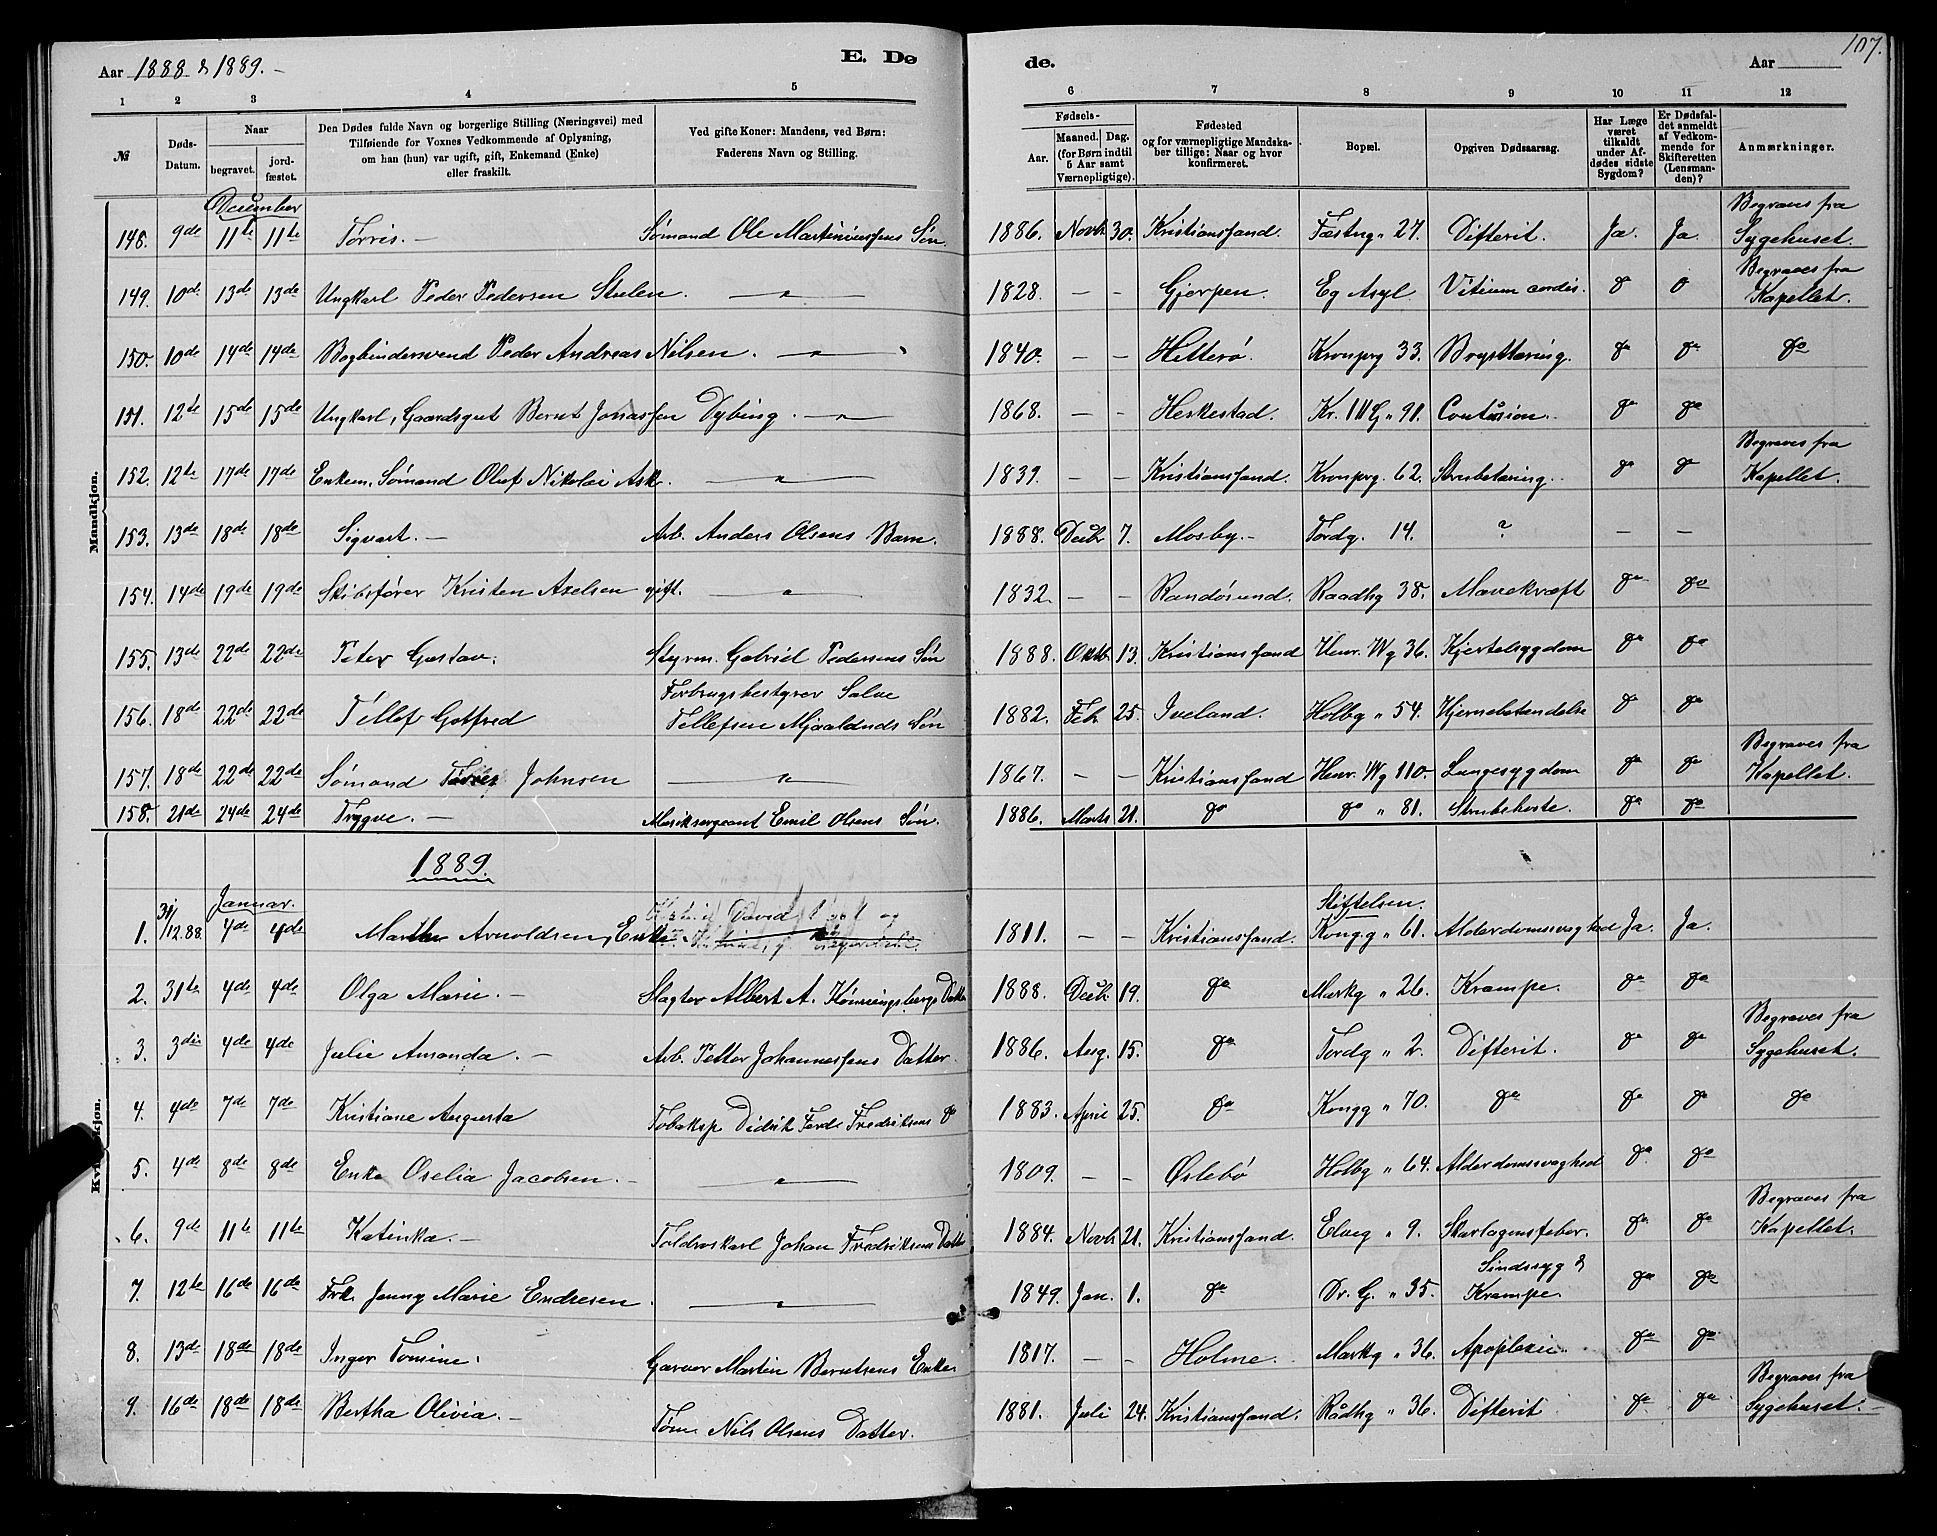 107.
Aar 1888 & 1889. –
E. Dø
de.
Aar
1 2 3 4 5 6 7 8 9 10 11 12
№
Døds-Datum.
Naar
begravet.
jord-fæstet.
Den Dødes fulde Navn og borgerlige Stilling (Næringsvei) med
Tilføiende for Voxnes Vedkommende af Oplysning,
om han (hun) var ugift, gift, Enkemand (Enke)
eller fraskilt.
Ved gifte Koner: Mandens, ved Børn:
Faderens Navn og Stilling.
Fødsels-
Aar.
Maaned. Dag.
(for Børn indtil
5 Aar samt
Værnepligtige).
Fødested
og for værnepligtige Mandska-
ber tillige: Naar og hvor
konfirmeret.
Bopæl.
Opgiven Dødsaarsag.
Har Læge
været
tilkaldt
under Af-
dødes sidste
Sygdom?
Er Dødsfal-
det anmeldt
af Vedkom-
mende for
Skifteretten
(Lensman-
den)?
Anmærkninger.
Mandkjøn.
December
148. 9de 11te 11te Torris. – Sømand Ole Martiniussens Søn 1886. Novb 30. Kristianssand. Fæstng " 27. Difterit. Ja. Ja. Begraves fra Sygehuset.
149. 10de 13de 13de Ungkarl Peder Pedersen Stulen. — " — 1828. – – Gjerpen. Eg Asyl Vitium cordis. do do Begraves fra Kapellet.
150. 10de 14de 14de Bogbindersvend Peder Andreas Nilsen. — " — 1840. – – Hitterø. Kronprg 33. Brysttæring. do do do
151. 12te 15de 15de Ungkarl, Gaardsgut Bernt Jonassen Dybing. — " — 1868. – – Heskestad. Kr. IV G " 91. Contusion. do do
152. 12te 17de 17de Enkem. Sømand Oluf Nikolai Ask. — " — 1839. – – Kristianssand. Kronprg. 62. Strubetæring. do do Begraves fra Kapellet.
153. 13de 18de 18de Sigvart. – Arb. Anders Olsens Barn. 1888. Decbr 7. Mosby. – Tordg. 14. ? – –
154. 14de 19de 19de Skibsfører Kristen Axelsen gift. — " — 1832. – – Randøsund. Raadhg 38. Mavekræft do do
155. 13de 22de 22de Peter Gustav. Styrm. Gabriel Pedersens Søn 1888. Oktb. 13. Kristianssand Henr. Wg 36. Kjertelsygdom do do
156. 18de 22de 22de Tellef Gotfred Forbrugsbestyrer Salve Tellefsen Mjaalands Søn 1882. Feb. 25. Iveland. Holbg " 54. Hjernebetændelse do do
157. 18de 22de 22de Sømand Johnsen — " — 1867. – – Kristianssand Henr. Wg 110 Lungesygdom do do Begraves fra Kapellet.
158. 21de 24de 24de Trygve. – Musiksergeant Emil Olsens Søn. 1886. Marts 21. do do " 81. Strubehoste. do do
1889.
Kvindekjøn.
Januar.
1. 31/12.88. 4de 4de Marthe Arnoldsen, Enke David 1811. – Kristianssand. Stiftelsen. Kongg " 61. Alderdomssvaghed Ja. Ja.
2. 31te 4de 4de Olga Marie. – Slagter Albert A. Kønningsbergs Datter 1888. Decbr. 19. do Markg " 26. Krampe. do do
3. 3die 4de 4de Julie Amanda. – Arb. Petter Johannessens Datter. 1886. Aug. 15. do Tordg " 2. Difterit. do do Begraves fra Sygehuset.
4. 4de 7de 7de Kristiane Augusta Tobaksp Didrik Ferd. Fredriksens do 1883. April 25. do Kongg " 70. do do do do
5. 4de 8de 8de Enke Oselia Jacobsen. – — " — 1809. – – Øslebø Holbg " 64. Alderdomssvaghed do do
6. 9de 11te 11te Katinka. – Toldroskarl Johan Fredriksens Datter 1884. Novb. 21. Kristianssand. Elveg " 9. Skarlagensfeber. do do Begraves fra Kapellet.
7. 12te 16de 16de Frk. Jenny Marie Endresen. — " — 1849. Jan. 1. do Dr. G. " 35. Sindssyg & Krampe. do do
8. 13de 18de 18de Inger Tomine. Garver Martin Berntsens Enke. 1817. – – Holme. Markg " 36. Apoplexie. do do
9. 16de 18de 18de Bertha Olivia. – Tøm. Nils Olsens Datter. 1881. Juli 24. Kristianssand. Rådhg " 36. Difterit do do Begraves fra Sygehuset. –